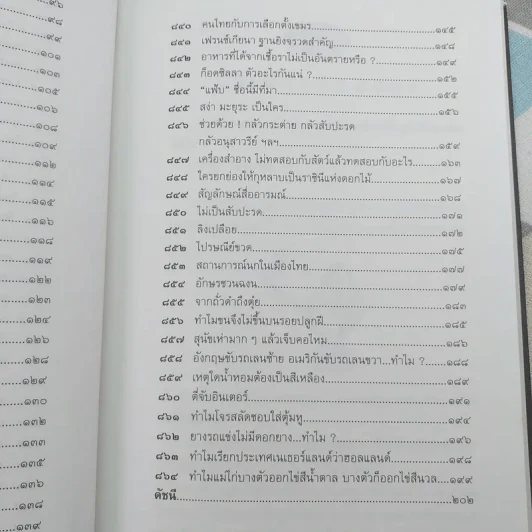 ๙๖
๙๘
๙๙
๑๐๑
๑๐๓
๑๐๕
๑๐๖
๑๐๘
๑๐๙
๑๑๒
๑๑๔
๑๑๕
๑๑๖
๑๑๘
๑๑๙
๑๒๒
๑๒๓
๑๒๔
๑๒๖
๑๒๘
๑๒๙
๑๓๐
๑๓๒
๑๓๓
๑๓๕
๑๓๖
๑๓๘
๑๓๙
๘๔๐ คนไทยกับการเลือกตั้งเขมร ๑๔๕
๘๔๑ เฟรนช์เกียนา ฐานยิงจรวดสำคัญ ๑๔๘
๘๔๒ อาหารที่ได้จากเชื้อราไม่เป็นอันตรายหรือ ? ๑๔๙
๘๔๓ ก็อดซิลลา ตัวอะไรกันแน่ ? ๑๕๒
๘๔๔ “แฟ้บ” ชื่อนี้มีที่มา ๑๕๕
๘๔๕ สง่า มะยุระ เป็นใคร ๑๕๖
๘๔๖ ช่วยด้วย ! กลัวกระต่าย กลัวสับปะรด
กลัวอนุสาวรีย์ ฯลฯ ๑๕๙
๘๔๗ เครื่องสำอาง ไม่ทดสอบกับสัตว์แล้วทดสอบกับอะไร ๑๖๓
๘๔๘ ใครยกย่องให้กุหลาบเป็นราชินีแห่งดอกไม้ ๑๖๗
๘๔๙ สัญลักษณ์สื่ออารมณ์ ๑๖๘
๘๕๐ ไม่เป็นสับปะรด ๑๗๑
๘๕๑ ลิงเปลือย ๑๗๒
๘๕๒ ไปรษณีย์ขวด ๑๗๕
๘๕๓ สถานการณ์นกในเมืองไทย ๑๗๗
๘๕๔ อักษรชวนฉงน ๑๗๙
๘๕๕ จากถั่วดำถึงตุ๋ย ๑๘๓
๘๕๖ ทำไมขนจึงไม่ขึ้นบนรอยปลูกฝี ๑๘๕
๘๕๗ สุนัขเห่ามาก ๆ แล้วเจ็บคอไหม ๑๘๖
๘๕๘ อังกฤษขับรถเลนซ้าย อเมริกันขับรถเลนขวา...ทำไม ? ๑๘๘
๘๕๙ เหตุใดน้ำหอมต้องเป็นสีเหลือง ๑๘๙
๘๖๐ ตี่จับอินเตอร์ ๑๙๑
๘๖๑ ทำไมโจรสลัดชอบใส่ตุ้มหู ๑๙๔
๘๖๒ ยางรถแข่งไม่มีดอกยาง...ทำไม ? ๑๙๖
๘๖๓ ทำไมเรียกประเทศเนเธอร์แลนด์ว่าฮอลแลนด์ ๑๙๘
๘๖๔ ทำไมแม่ไก่บางตัวออกไข่สีน้ำตาล บางตัวก็ออกไข่สีนวล ๑๙๙
ดัชนี ๒๐๒